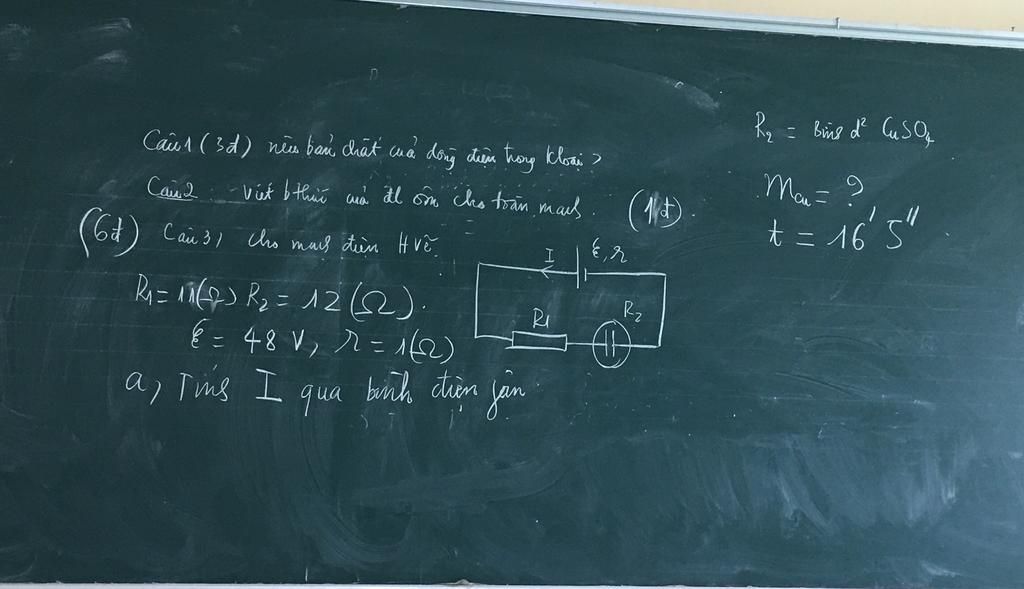 Câu 1 (3đ) nêu bản chất của dòng điện trong kloại?
Câu 2. Viết bthức của đl ôm cho toàn mạch. (1đ).
(6đ) Câu 3, Cho mạch điện Hvẽ.
R1 = 11(Ω) R2 = 12(Ω).
ℰ = 48 V, r = 1(Ω)
a, Tính I qua bình điện fân
I ℰ, r
R1 R2
R2 = Bình d² CuSO4
mCu = ?
t = 16' 5''.